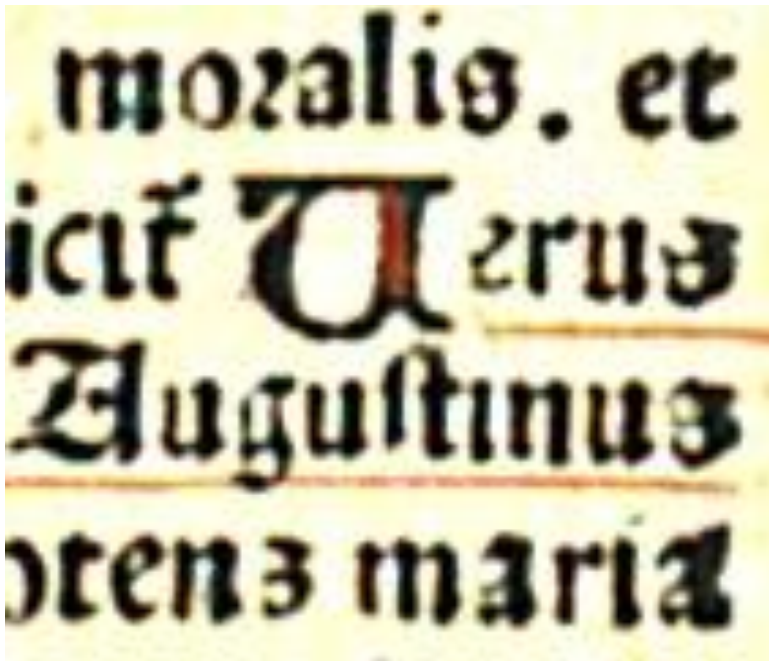 moralis. et
icit̄ Uerus
Augustinus
otens maria